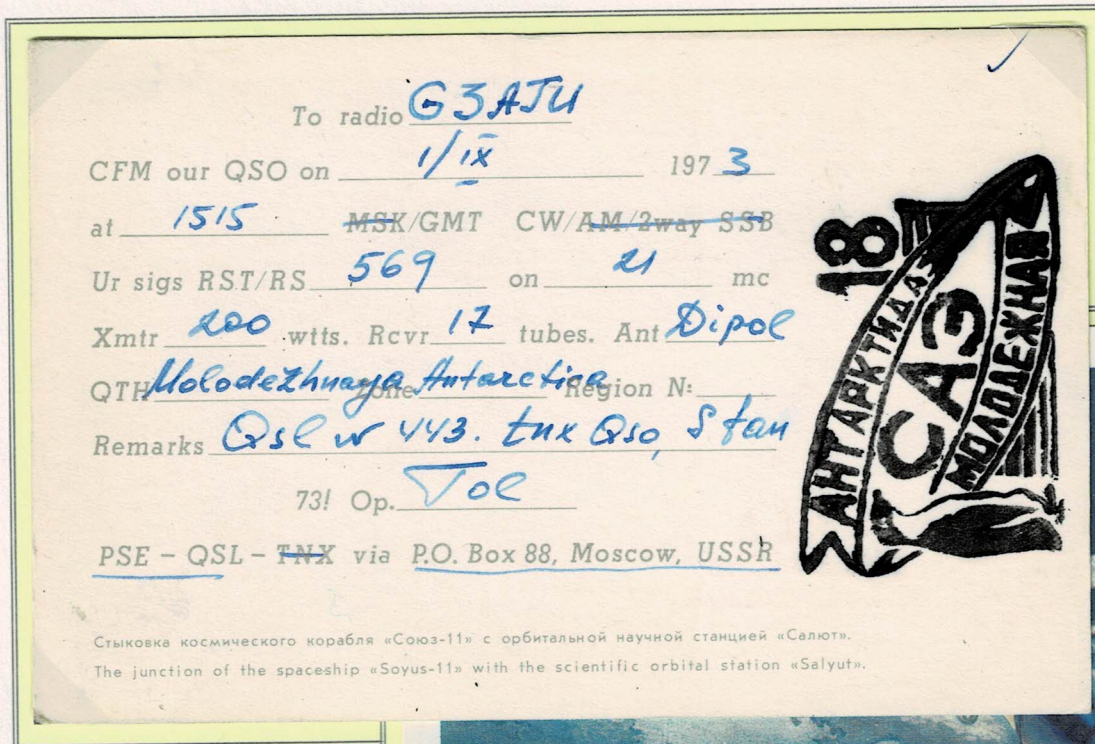 To radio G3AJU
CFM our QSO on 1/IX 1973
at 1515 MSK/GMT CW/AM/2way SSB
Ur sigs RST/RS 569 on 21 mc
Xmtr 200 wtts. Rcvr 17 tubes. Ant Dipol
QTH Molodezhnaya Antarctica Zone Region N:
Remarks Qsl w 443. tnx Qso, Stan
73! Op. Tol
PSE – QSL – TNX via P.O. Box 88, Moscow, USSR
Стыковка космического корабля «Союз-11» с орбитальной научной станцией «Салют».
The junction of the spaceship «Soyus-11» with the scientific orbital station «Salyut».
18
АНТАРКТИДА
САЭ
МОЛОДЕЖНАЯ